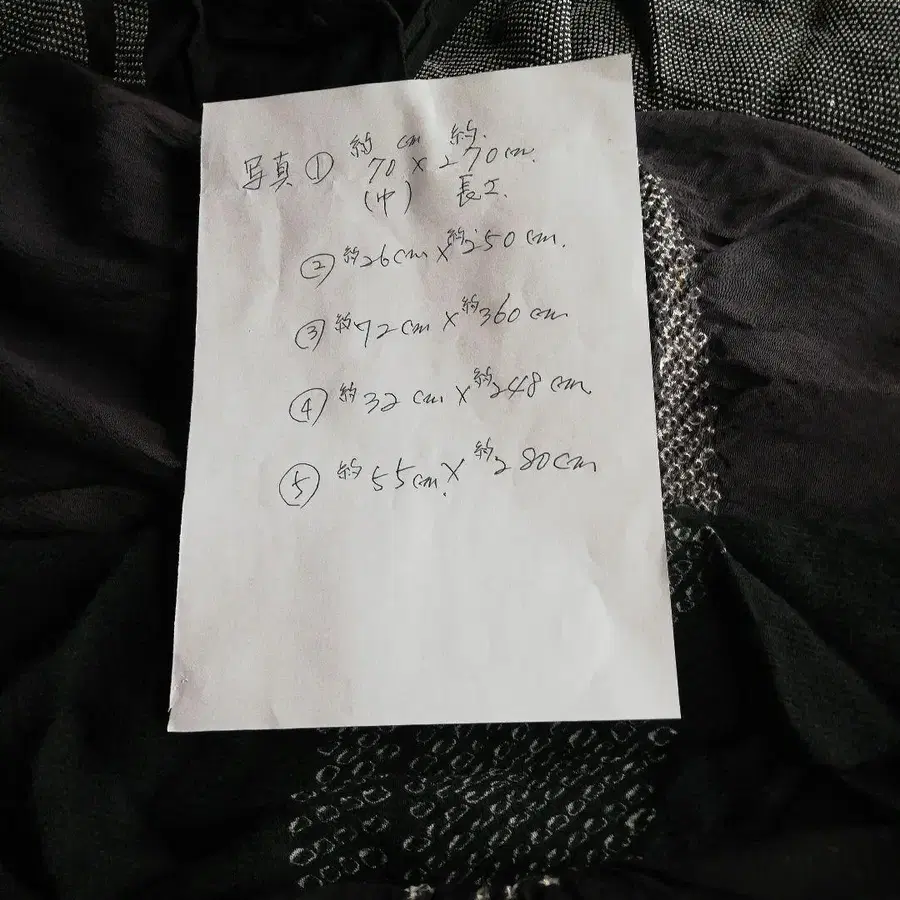 写真① 約70cm×約270cm.
(巾) 長サ.
② 約26cm×約250cm.
③ 約72cm×約360cm
④ 約32cm×約248cm
⑤ 約55cm×約280cm